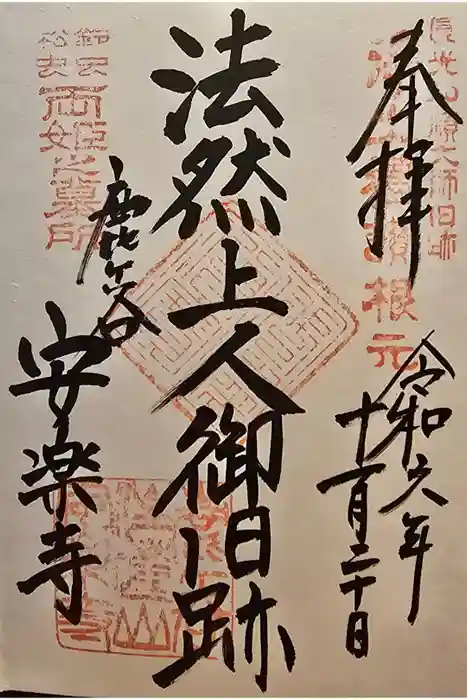 奉拝
令和六年
十一月二十日
法然上人御旧跡
鹿ヶ谷
安楽寺
鈴虫
松虫
両姫之墓所
根元